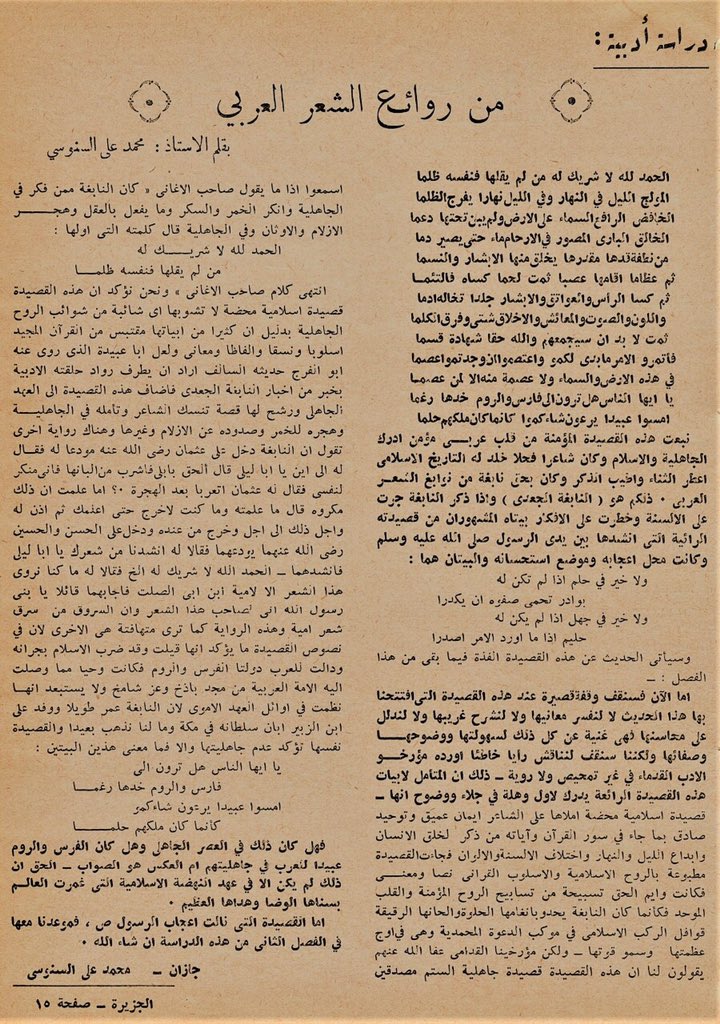 دراسة أدبية :
من روائع الشعر العربي
بقلم الاستاذ : محمد على السنوسي
الحمد لله لا شريك له من لم يقلها فنفسه ظلما
المولج الليل في النهار وفي الليل نهارا يفرج الظلما
الخافض الرافع السماء على الارض ولم يبن تحتها دعما
الخالق البارى المصور في الارحام ماء حتى يصير دما
من نطفة قدها مقدرها يخلق منها الابشار والنسما
ثم عظاما اقامها عصب ثمت لحما كساه فالتئما
ثم كسا الرأس والعواتق والابشار جلدا تخاله ادما
واللون والصوت والمعائش والاخلاق شتى وفرق الكلما
ثمت لا بد ان سيجمعهم والله حقا شهادة قسما
فأتمرو الامر ما بدى لكمو واعتصموا ان وجدتمو اعصما
في هذه الارض والسماء ولا عصمة منه الا لمن عصما
يا ايها الناس هل ترون الى فارس والروم خدها رغما
امسوا عبيدا يرعون شاءكموا كانما كان ملكهم حلما
نبعت هذه القصيدة المؤمنة من قلب عربى مؤمن ادرك
الجاهلية والاسلام وكان شاعرا فحلا خلد له التاريخ الاسلامى
اعطر الثناء واطيب الذكر وكان بحق نابغة من نوابغ الشعر
العربى ٠ ذلكم هو ( النابغة الجعدى ) واذا ذكر النابغة جرت
على الالسنة وخطرت على الافكار بيتاه المشهوران من قصيدته
الرائية التى انشدها بين يدى الرسول صلى الله عليه وسلم
وكانت محل اعجابه وموضع استحسانه والبيتان هما :
ولا خير في حلم اذا لم تكن له
بوادر تحمى صفوه ان يكدرا
ولا خير في جهل اذا لم يكن له
حليم اذا ما اورد الامر اصدرا
وسيأتى الحديث عن هذه القصيدة الفذة فيما بقى من هذا
الفصل : ــ
اما الآن فسنقف وقفة قصيرة عند هذه القصيدة التى افتتحنا
بها هذا الحديث لا لنفسر معانيها ولا لنشرح غريبها ولا لندلل
على محاسنها فهى غنية عن كل ذلك لسهولتها ووضوحهـــا
وصفائها ولكننا سنقف لنناقش رأيا خاطئا اورده مؤرخـــو
الادب القدماء في غير تمحيص ولا روية ــ ذلك ان المتأمل لابيات
هذه القصيدة الرائعة يدرك لاول وهلة في جلاء ووضوح انها ــ
قصيدة اسلامية محضة املاها على الشاعر ايمان عميق وتوحيد
صادق بما جاء في سور القرآن وآياته من ذكر لخلق الانسان
وابداع الليل والنهار واختلاف الالسنة والالوان فجاءت القصيدة
مطبوعة بالروح الاسلامية والاسلوب القرانى نصا ومعنــى
فكانت وايم الحق تسبيحة من تسابيح الروح المؤمنة والقلب
الموحد فكانما كان النابغة يحدو بانغامها الحلوة والحانها الرقيقة
قوافل الركب الاسلامى في موكب الدعوة المحمدية وهى في اوج
عظمتها وسمو قوتها ــ ولكن مؤرخينا القدامى عفا الله عنهم
يقولون لنا ان هذه القصيدة قصيدة جاهلية الستم مصدقين
اسمعوا اذا ما يقول صاحب الاغانى « كان النابغة ممن فكر في
الجاهلية وانكر الخمر والسكر وما يفعل بالعقل وهجـــر
الازلام والاوثان وفي الجاهلية قال كلمته التى اولها :
الحمد لله لا شريــك له
من لم يقلها فنفسه ظلمــا
انتهى كلام صاحب الاغانى » ونحن نؤكد ان هذه القصيدة
قصيدة اسلامية محضة لا تشوبها اى شائبة من شوائب الروح
الجاهلية بدليل ان كثيرا من ابياتها مقتبس من القرآن المجيد
اسلوبا ونسقا والفاظا ومعانى ولعل ابا عبيدة الذى روى عنه
ابو الفرج حديثه السالف اراد ان يطرف رواد حلقته الادبية
بخبر من اخبار النابغة الجعدى فاضاف هذه القصيدة الى العهد
الجاهلى ورشح لها قصة تنسك الشاعر وتأمله في الجاهليــة
وهجره للخمر وصدوده عن الازلام وغيرها وهناك رواية اخرى
تقول ان النابغة دخل على عثمان رضى الله عنه مودعا له فقــال
له الى اين يا ابا ليلى قال الحق بابلى فاشرب من البانها فانى منكر
لنفسى فقال له عثمان اتعربا بعد الهجرة ٠؟ اما علمت ان ذلك
مكروه قال ما علمته وما كنت لاخرج حتى اعلمك ثم اذن له
واجل ذلك الى اجل وخرج من عنده ودخل على الحسن والحسين
رضى الله عنهما يودعهما فقالا له انشدنا من شعرك يا ابا ليلى
فانشدهما ــ الحمد لله لا شريك له الخ فقالا له ما كنا نروى
هذا الشعر الا لامية ابن ابى الصلت فاجابهما قائلا يا بنى
رسول الله انى لصاحب هذا الشعر وان السروق من سرق
شعر امية وهذه الرواية كما ترى متهافتة هى الاخرى لان في
نصوص القصيدة ما يؤكد انها قيلت وقد ضرب الاسلام بجرانه
ودالت للعرب دولتا الفرس والروم فكانت وحيا مما وصلت
اليه الامة العربية من مجد باذخ وعز شامخ ولا يستبعد انهــا
نظمت في اوائل العهد الاموى لان النابغة عمر طويلا ووفد على
ابن الزبير ابان سلطانه في مكة وما لنا نذهب بعيدا والقصيدة
نفسها تؤكد عدم جاهليتها والا فما معنى هذين البيتين :
يا ايها الناس هل ترون الى
فارس والروم خدها رغمــا
امسوا عبيدا يرعون شاءكمو
كأنما كان ملكهم حلمــا
فهل كان ذلك في العصر الجاهلى وهل كان الفرس والروم
عبيدا للعرب في جاهليتهم ام العكس هو الصواب ــ الحق ان
ذلك لم يكن الا في عهد النهضة الاسلامية التى غمرت العالــم
بسناها الوضا وهداها العظيم ٠
اما القصيدة التى نالت اعجاب الرسول ص ، فموعدنا معها
في الفصل الثانى من هذه الدراسة ان شاء الله ٠
جازان ــ محمد على السنوسى
الجزيرة ــ صفحة ١٥